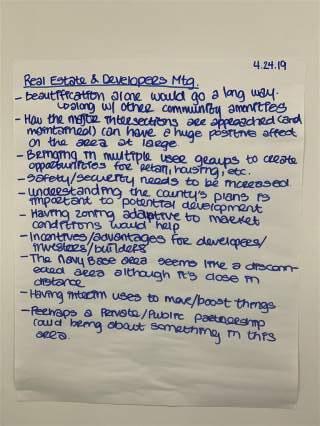 4.24.19
Real Estate & Developers Mtg.
- Beautification alone would go a long way.
↳ along w/ other community amenities
- How the major intersections are approached (and
maintained) can have a huge positive affect
on the area at large.
- Bringing in multiple user groups to create
opportunities for retail, housing, etc.
- Safety/security needs to be increased.
- Understanding the county's plans is
important to potential development
- Having zoning adaptive to market
conditions would help
- Incentives/advantages for developers/
investors/builders
- The Navy Base area seems like a discon-
nected area although it's close in
distance
- Having interim uses to move/boost things
- Perhaps a Private/Public Partnership
could bring about something in this
area.